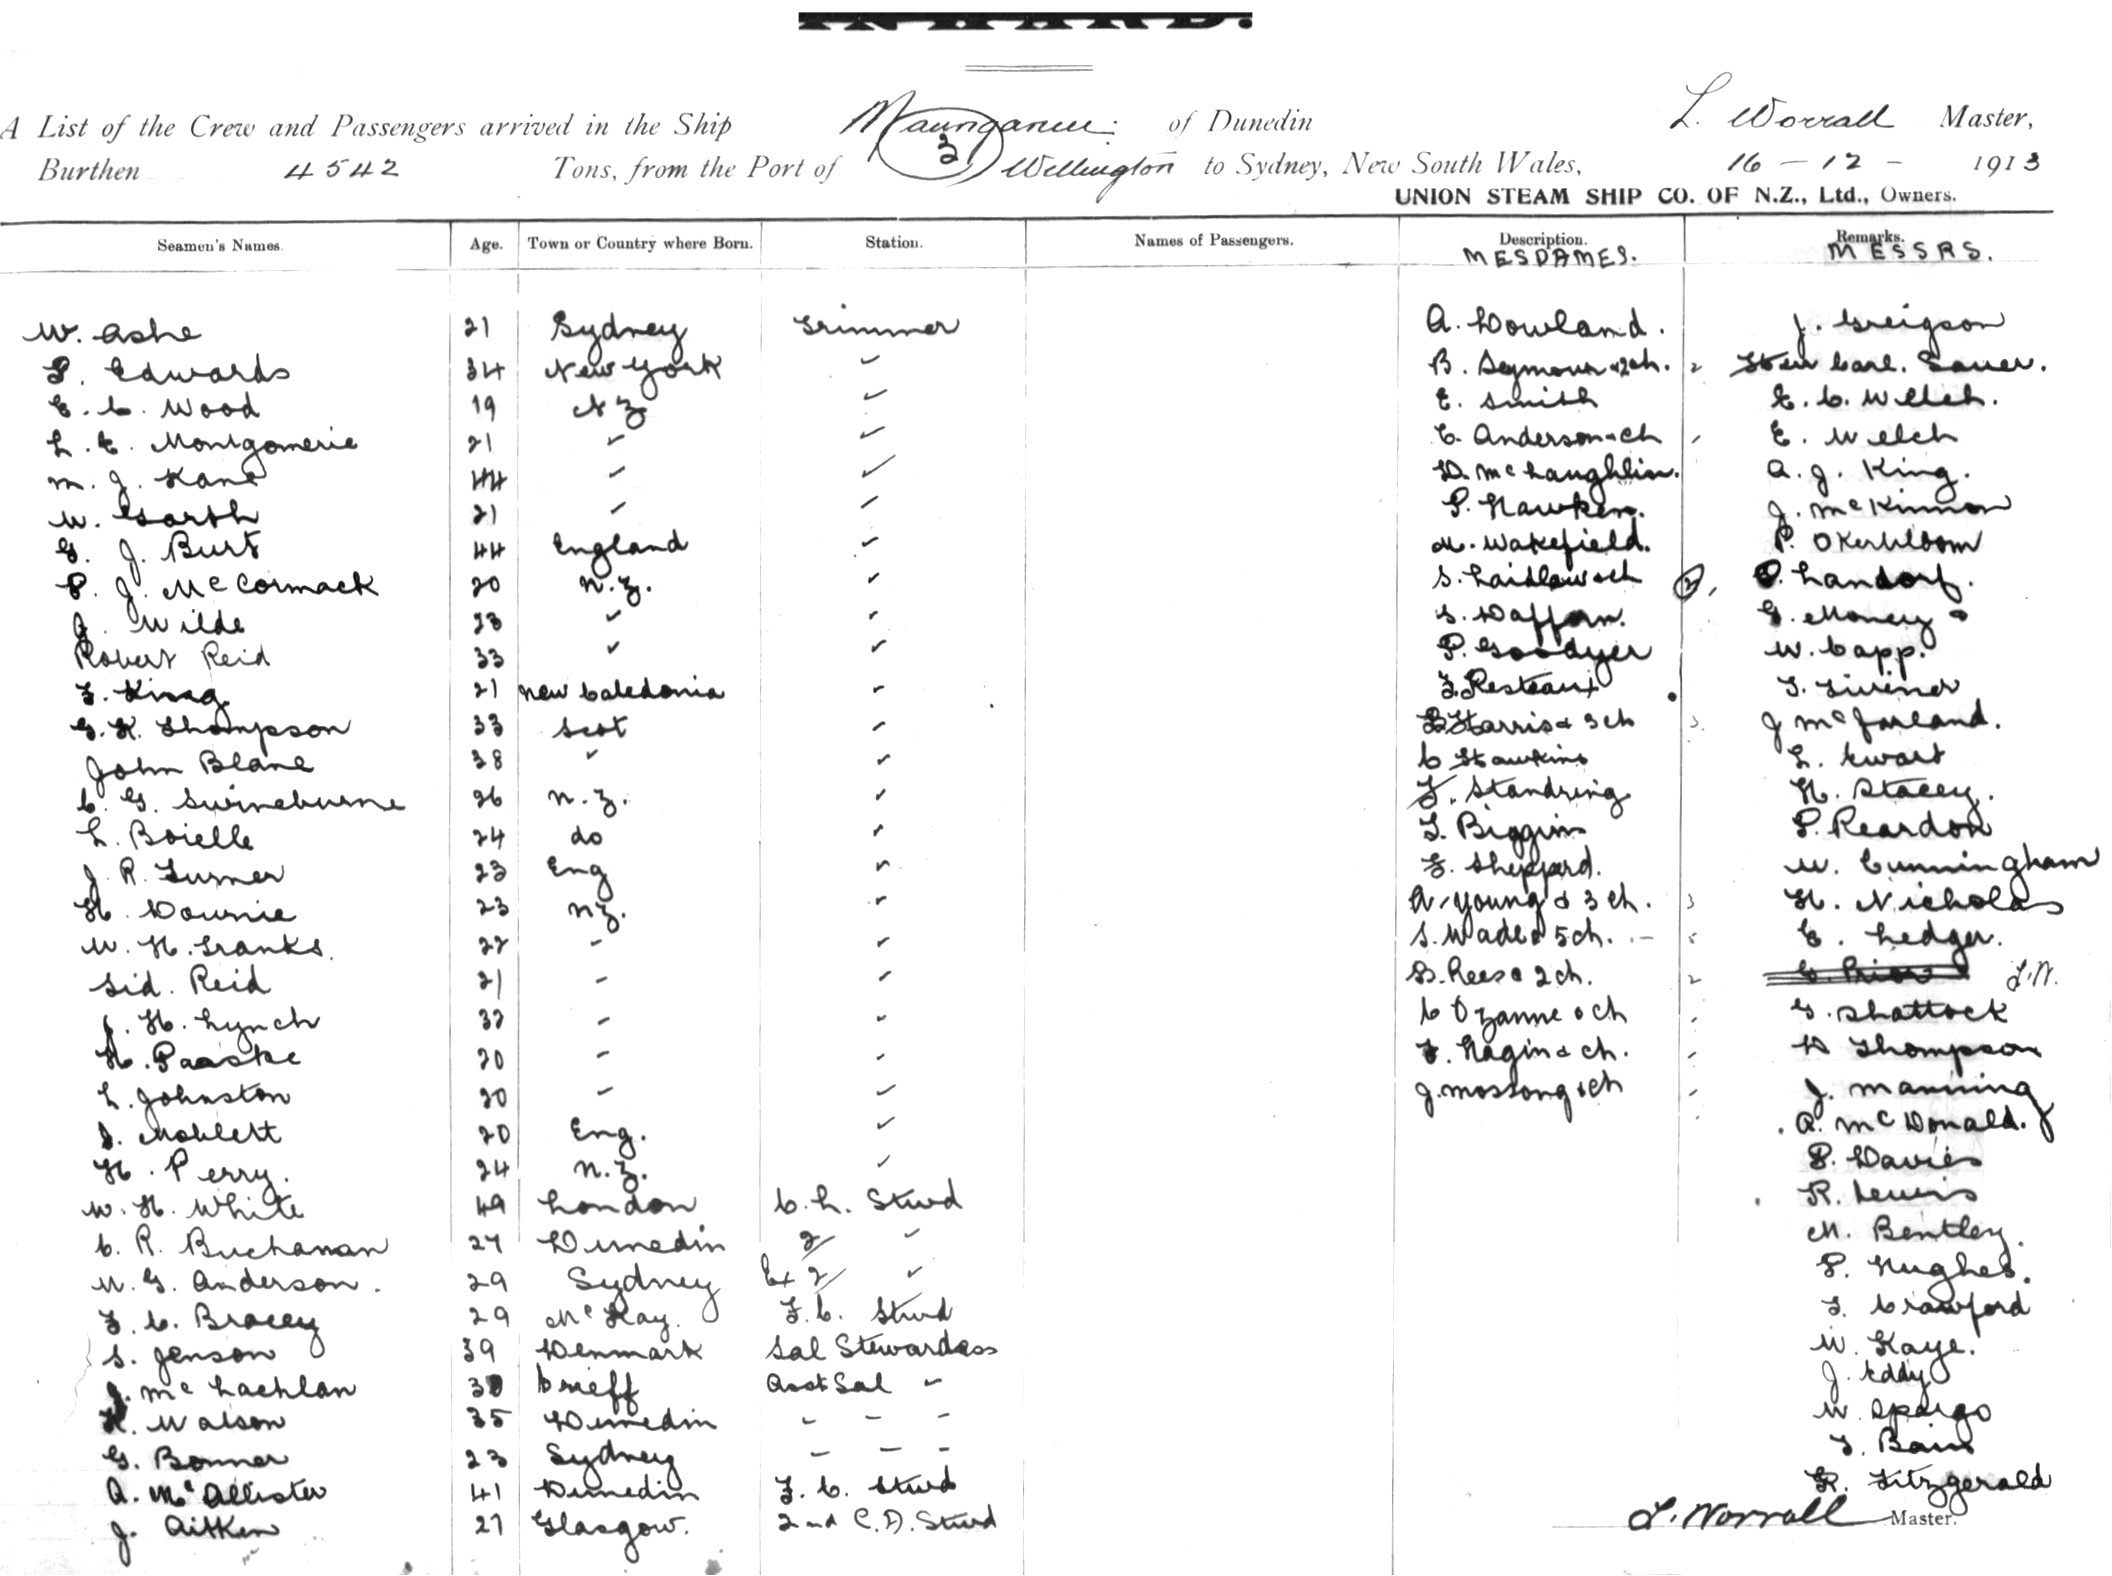 INWARD.
A List of the Crew and Passengers arrived in the Ship Maunganui of Dunedin L. Worrall Master,
3
Burthen 4542 Tons, from the Port of Wellington to Sydney, New South Wales, 16 - 12 - 1913
UNION STEAM SHIP CO. OF N.Z., Ltd., Owners.
Seamen's Names. Age. Town or Country where Born. Station. Names of Passengers. Description. Remarks.
MESDAMES. MESSRS.
W. Ashe 21 Sydney Trimmer A. Dowland. J. Greigson
P. Edwards 34 New York " B. Seymour & 2 ch. 2 Carl. Sauer.
E. C. Wood 19 N Z. " E. Smith E. C. Welch.
L. E. Montgomerie 21 " " C. Anderson & ch E. Welch
M. J. Kane 44 " " D. McLaughlin. A. J. King.
W. Garth 21 " " P. Hawken. J. McKinnon
G. J. Burt 44 England " M. Wakefield. P. Okerbloom
P. J. McCormack 20 N.Z. " S. Laidlaw & ch Landorf.
J. Wilde 23 " " S. Daffarn. G. Money
Robert Reid 33 " " P. Goodyer W. Capp.
F. King 21 New Caledonia " F. Resteaux T.
G. K. Thompson 33 Scot " B Harris & 3 ch 3. J McFarland.
John Blane 38 " " C Hawkins L. Ewart
C. G. Swineburne 26 N.Z. " F. Standring H. Stacey.
L. Boielle 24 do " T. Biggins P. Reardon
J. R. Turner 23 Eng " F. Sheppard. W. Cunningham
H. Downie 23 NZ. " A. Young & 3 ch. 3 H. Nicholas
W. H. Franks. 22 " " S. Wade & 5 ch. 5 E. Ledger.
Sid. Reid 21 " " B. Rees & 2 ch. 2 C. Prior L.W.
J. H. Lynch 32 " " C Ozanne & ch G. Shattock
H. Paaske 20 " " F. Nagin & ch. D Thompson
L. Johnston 20 " " J. Mossong & ch J. Manning
J. 20 Eng. " A. McDonald.
H. Perry. 24 N.Z. " P. Davies
W. H. White 49 London C. h. Stwd R. Lewis
C. R. Buchanan 27 Dunedin 2/ " M. Bentley.
W. G. Anderson. 29 Sydney Ex 2/ " P. Hughes.
F. C. Bracey 29 McKay. F. C. Stwd T. Crawford
S. Jenson 39 Denmark Sal Stewardess W. Kaye.
J. McLachlan Crieff Asst Sal " J. Eddy
K. Watson 35 Dunedin - - - W. Spargo
G. Bonner 23 Sydney - - - T. Bain
A. McAllister 41 Dunedin F. C. Stwd R. Fitzgerald
J. Aitken 27 Glasgow. 2nd C.D. Stwd L. Worrall Master.